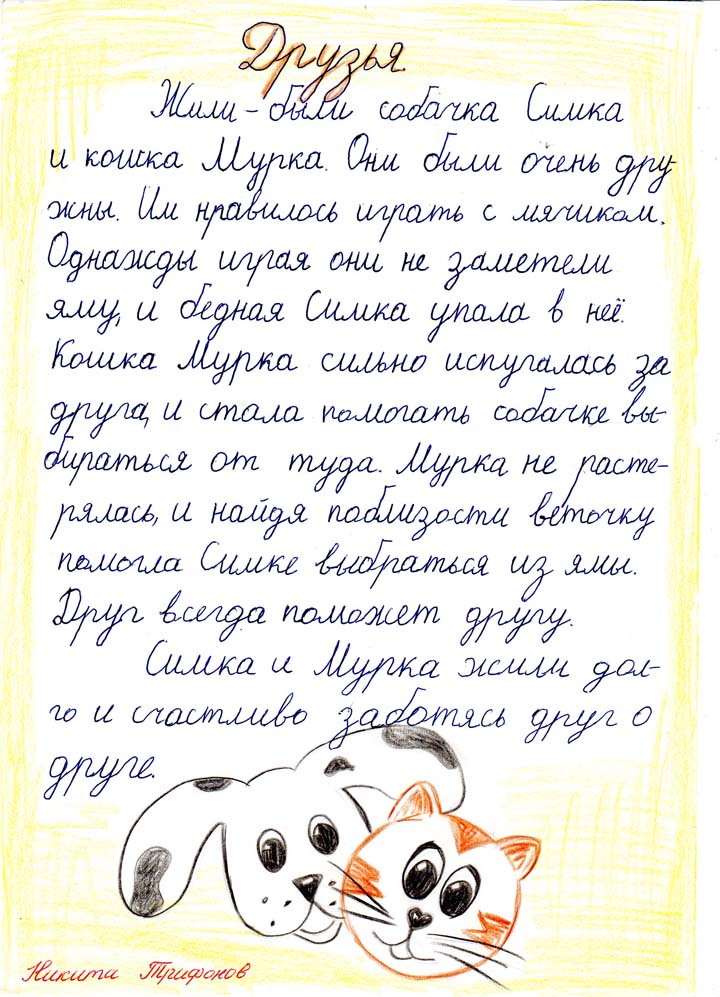 Друзья.
Жили-были собачка Симка
и кошка Мурка. Они были очень дру-
жны. Им нравилось играть с мячиком.
Однажды играя они не заметели
яму, и бедная Симка упала в неё.
Кошка Мурка сильно испугалась за
друга, и стала помогать собачке вы-
бираться от туда. Мурка не расте-
рялась, и найдя поблизости веточку
помогла Симке выбраться из ямы.
Друг всегда поможет другу.
Симка и Мурка жили дол-
го и счастливо заботясь друг о
друге.
Никита Трифонов